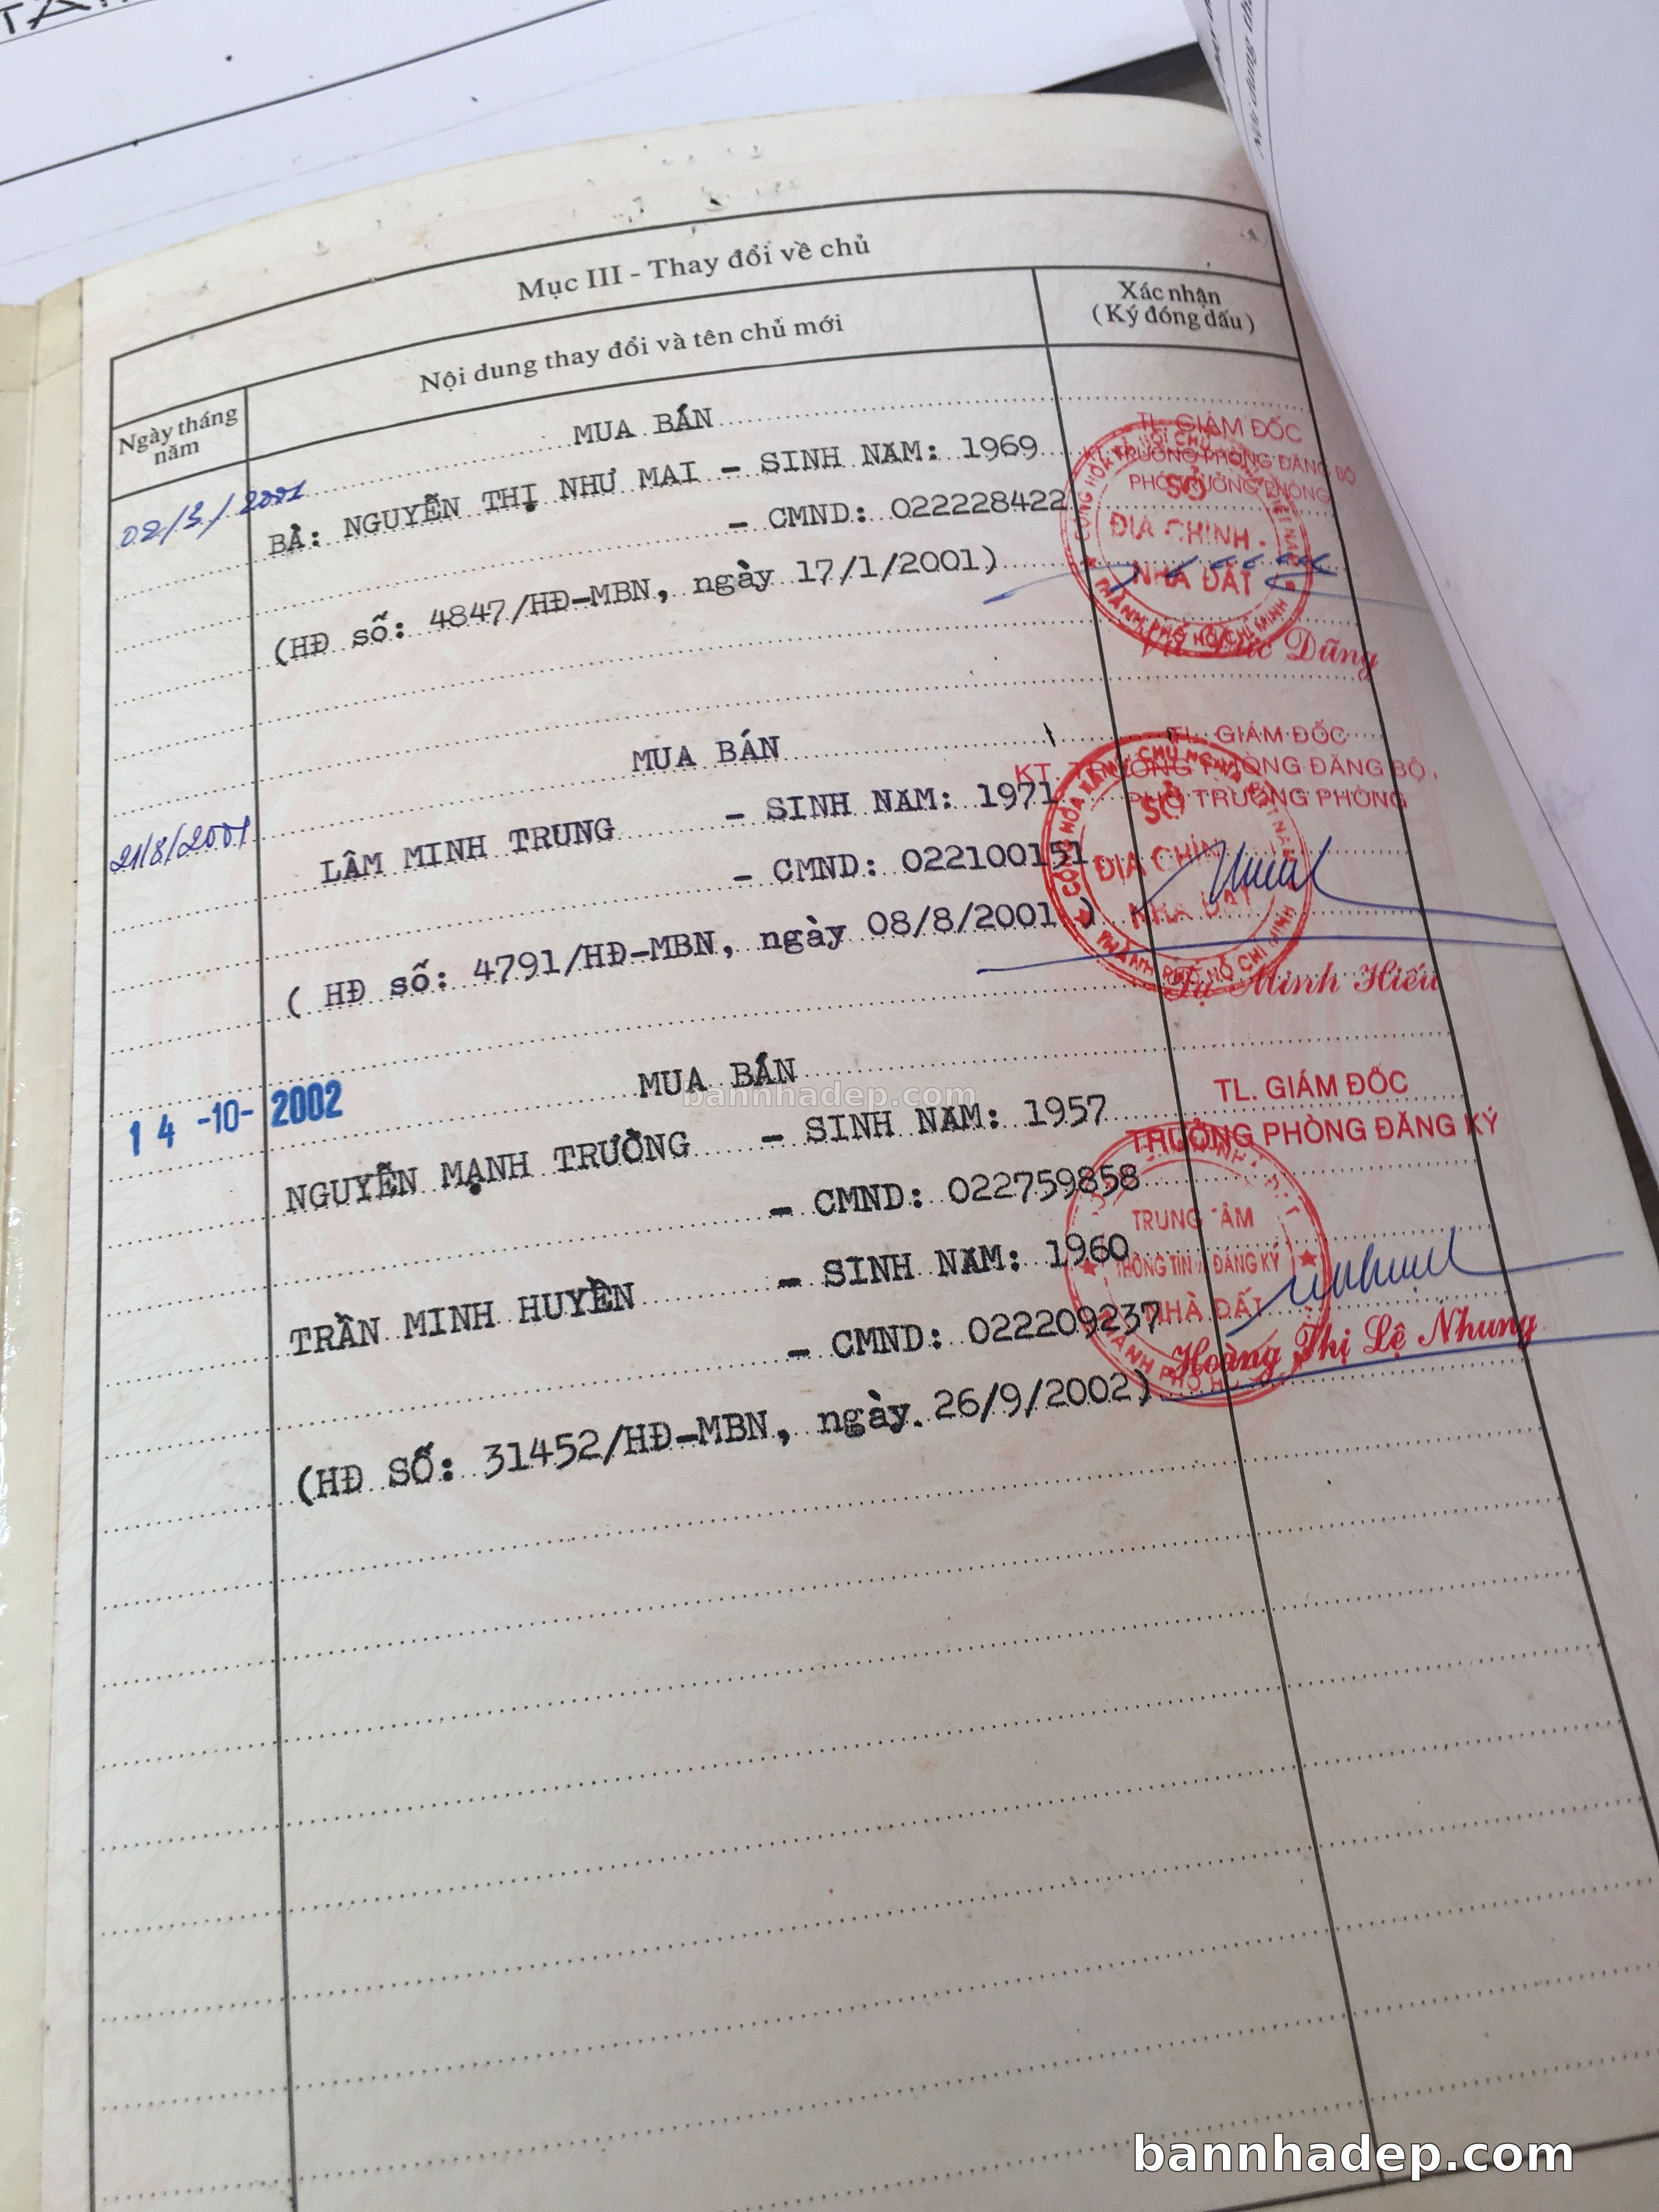 Mục III - Thay đổi về chủ
Ngày tháng năm
Nội dung thay đổi và tên chủ mới
Xác nhận
(Ký đóng dấu)
02/3/2001
MUA BÁN
BÀ: NGUYỄN THỊ NHƯ MAI - SINH NAM: 1969
- CMND: 022228422
(HĐ số: 4847/HĐ-MBN, ngày 17/1/2001)
TL. GIÁM ĐỐC
KT. TRƯỞNG PHÒNG ĐĂNG BỘ
PHÓ TRƯỞNG PHÒNG
SỞ
ĐỊA CHÍNH -
NHÀ ĐẤT
THÀNH PHỐ HỒ CHÍ MINH
Đức Dũng
21/8/2001
MUA BÁN
LÂM MINH TRUNG - SINH NAM: 1971
- CMND: 022100151
( HĐ số: 4791/HĐ-MBN, ngày 08/8/2001 )
TL. GIÁM ĐỐC
KT. TRƯỞNG PHÒNG ĐĂNG BỘ
PHÓ TRƯỞNG PHÒNG
SỞ
ĐỊA CHÍN
NHÀ ĐẤT
THÀNH PHỐ HỒ CHÍ MINH
Minh Hiếu
14 -10- 2002
MUA BÁN
NGUYỄN MẠNH TRƯỜNG - SINH NAM: 1957
- CMND: 022759858
TRẦN MINH HUYỀN - SINH NAM: 1960
- CMND: 022209237
(HĐ SỐ: 31452/HĐ-MBN, ngày. 26/9/2002)
TL. GIÁM ĐỐC
TRƯỞNG PHÒNG ĐĂNG KÝ
TRUNG TÂM
THÔNG TIN ĐĂNG KÝ
NHÀ ĐẤT
Hoàng Thị Lệ Nhung
bannhadep.com
bannhadep.com